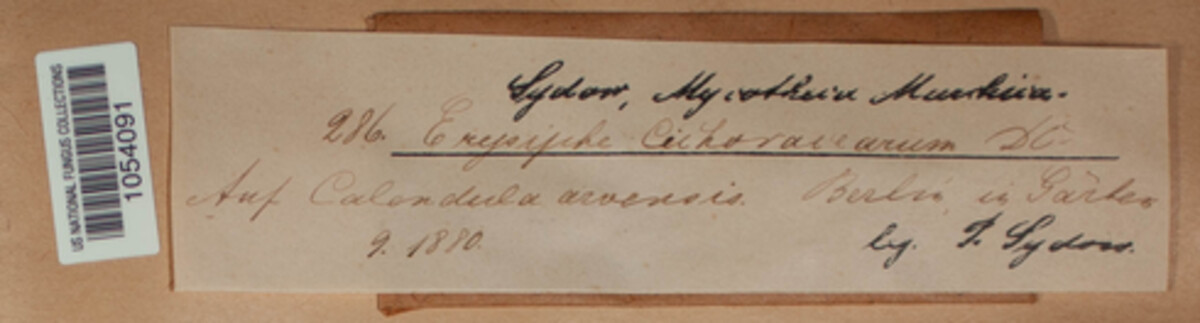 US NATIONAL FUNGUS COLLECTIONS
1054091
Sydow, Mycotheca Marchica.
286. Erysiphe Cichoracearum DC.
Auf Calendula arvensis. Berlin in Gärten
9. 1880.
leg. P. Sydow.